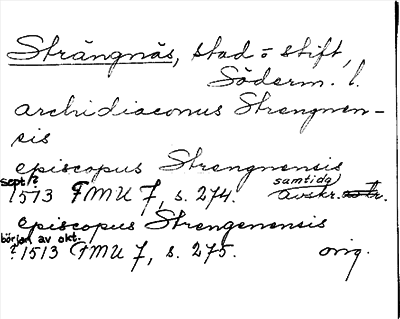 Strängnäs, stad o stift,
Söderm. l.
archidiaconus Strengnen-
sis
episcopus Strengnensis
sept.?
1513 FMU 7, s. 274. samtida avskr.
episcopus Strengenensis
början av okt.
? 1513 FMU 7, s. 275. orig.